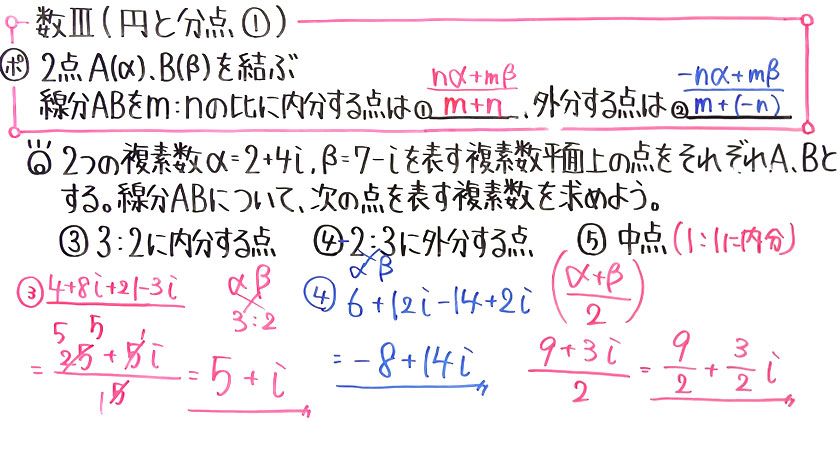 数Ⅲ(円と分点①)
ポ 2点A(α)、B(β)を結ぶ
線分ABをm:nの比に内分する点は① nα+mβ / m+n 、外分する点は② -nα+mβ / m+(-n)
2つの複素数α=2+4i, β=7-iを表す複素数平面上の点をそれぞれA、Bと
する。線分ABについて、次の点を表す複素数を求めよう。
③ 3:2に内分する点 ④-2:3に外分する点 ⑤ 中点(1:1に内分)
③ 4+8i+21-3i / 5
α β
3:2
= 25+5i / 5 5 5 1 1 = 5+i
α β
④ 6+12i-14+2i
= -8+14i
(α+β / 2)
9+3i / 2 = 9/2 + 3/2 i